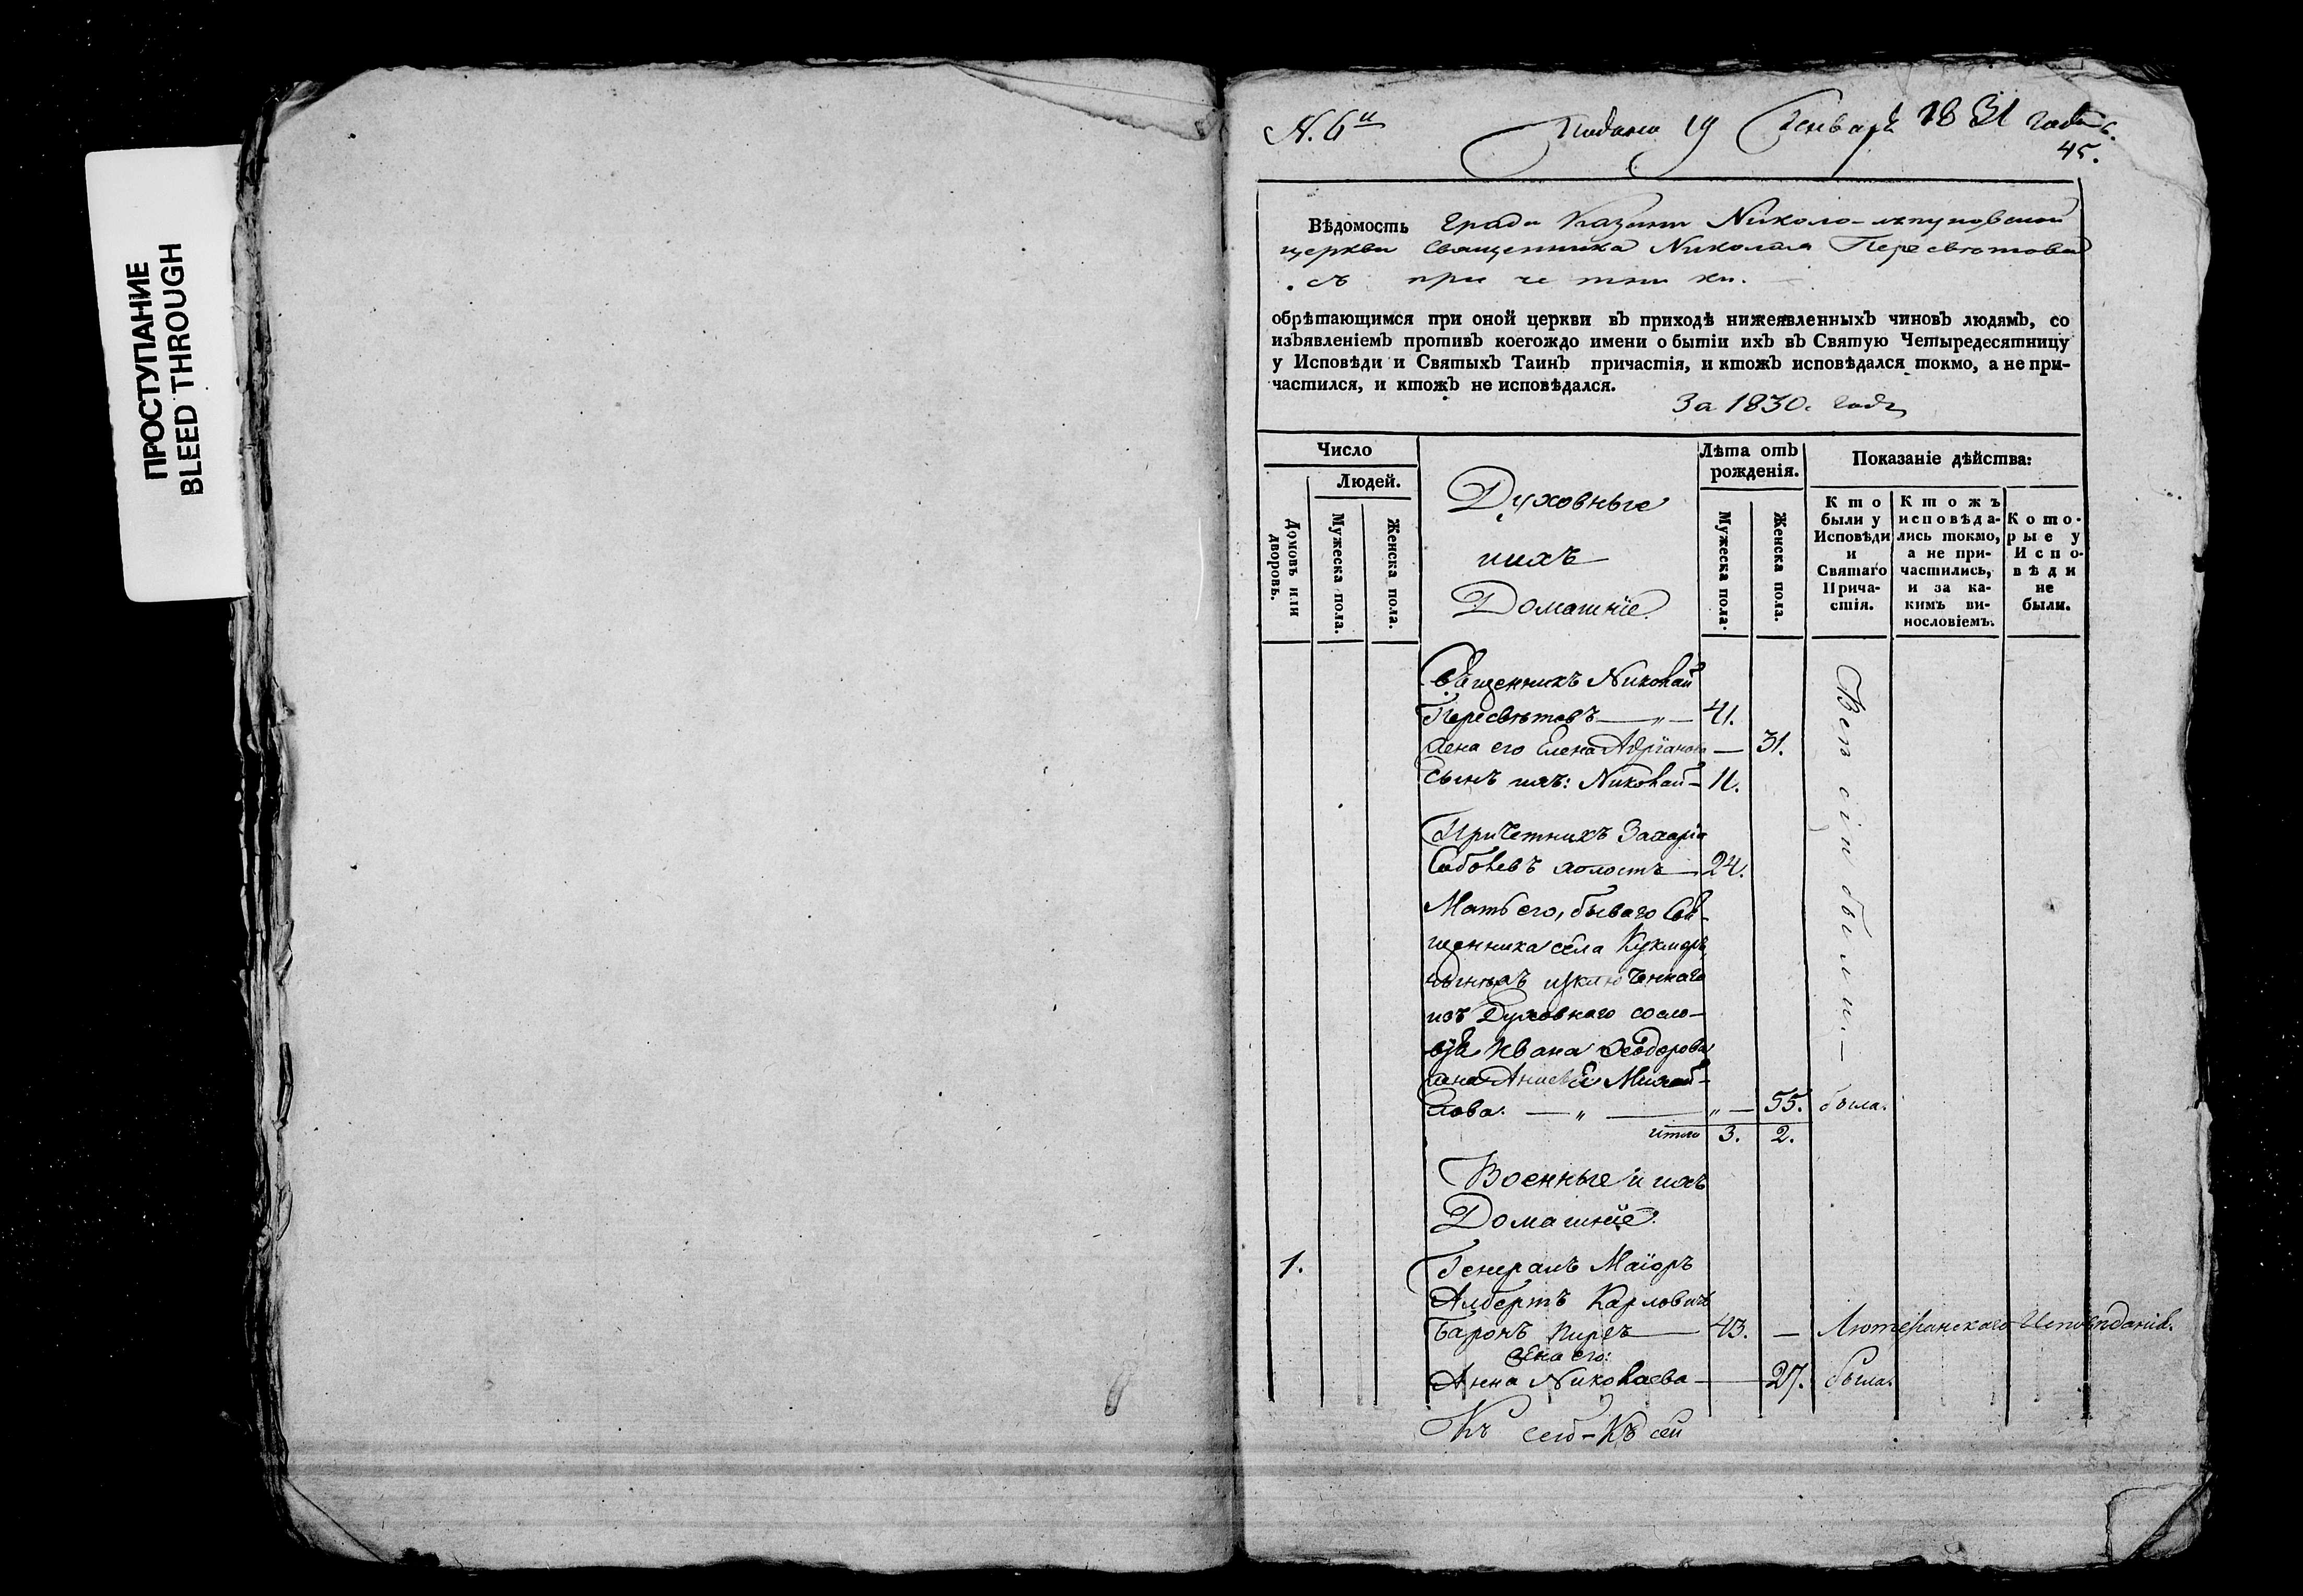 ПРОСТУПАНИЕ
BLEED THROUGH
N. 6й
Подана 19 Генваря 1831 года.
45.
Вѣдомость Града Казани Николо-ляпуновской
церкви Священника Николая Пересвѣтова
съ причетники.
обрѣтающимся при оной церкви въ приходѣ нижеявленныхъ чиновъ людямъ, со
изъявленіемъ противъ коегождо имени о бытіи ихъ въ Святую Четыредесятницу
у Исповѣди и Святыхъ Таинъ причастія, и ктожъ исповѣдался токмо, а не при-
частился, и ктожъ не исповѣдался.
За 1830. годъ
Число
Людей.
Домовъ или дворовъ.
Мужеска пола.
Женска пола.
Духовные
ихъ
Домашніе.
Лѣта отъ
рожденія.
Мужеска пола.
Женска пола.
Показаніе дѣйства:
Кто
были у
Исповѣди
и
Святаго
Прича-
стія.
Ктожъ
исповѣда-
лись токмо,
а не при-
частились,
и за ка-
кимъ ви-
нословіемъ.
Кото-
рые у
Испо-
вѣди
не
были.
Священникъ Николай
Пересвѣтовъ — „ — 41.
жена его Елена Адріанова — 31.
сынъ ихъ: Николай — 11.
Всѣ сіи были. —
Причетникъ Захарія
Соболевъ холостъ — 24.
Мать его, бываго Свя-
щенника села Кукмор
исключеннаго
изъ Духовнаго сосло-
вія Ивана Ѳеодорова
жена Михай-
лова. — „ — „ — 55. была.
итого 3. 2.
Военные и ихъ
Домашніе.
1. Генералъ Маіоръ
Албертъ Карловичъ
Баронъ Пирхъ — 43. — Лютеранскаго Исповѣданія.
жена его:
Анна Николаева — 27. была.